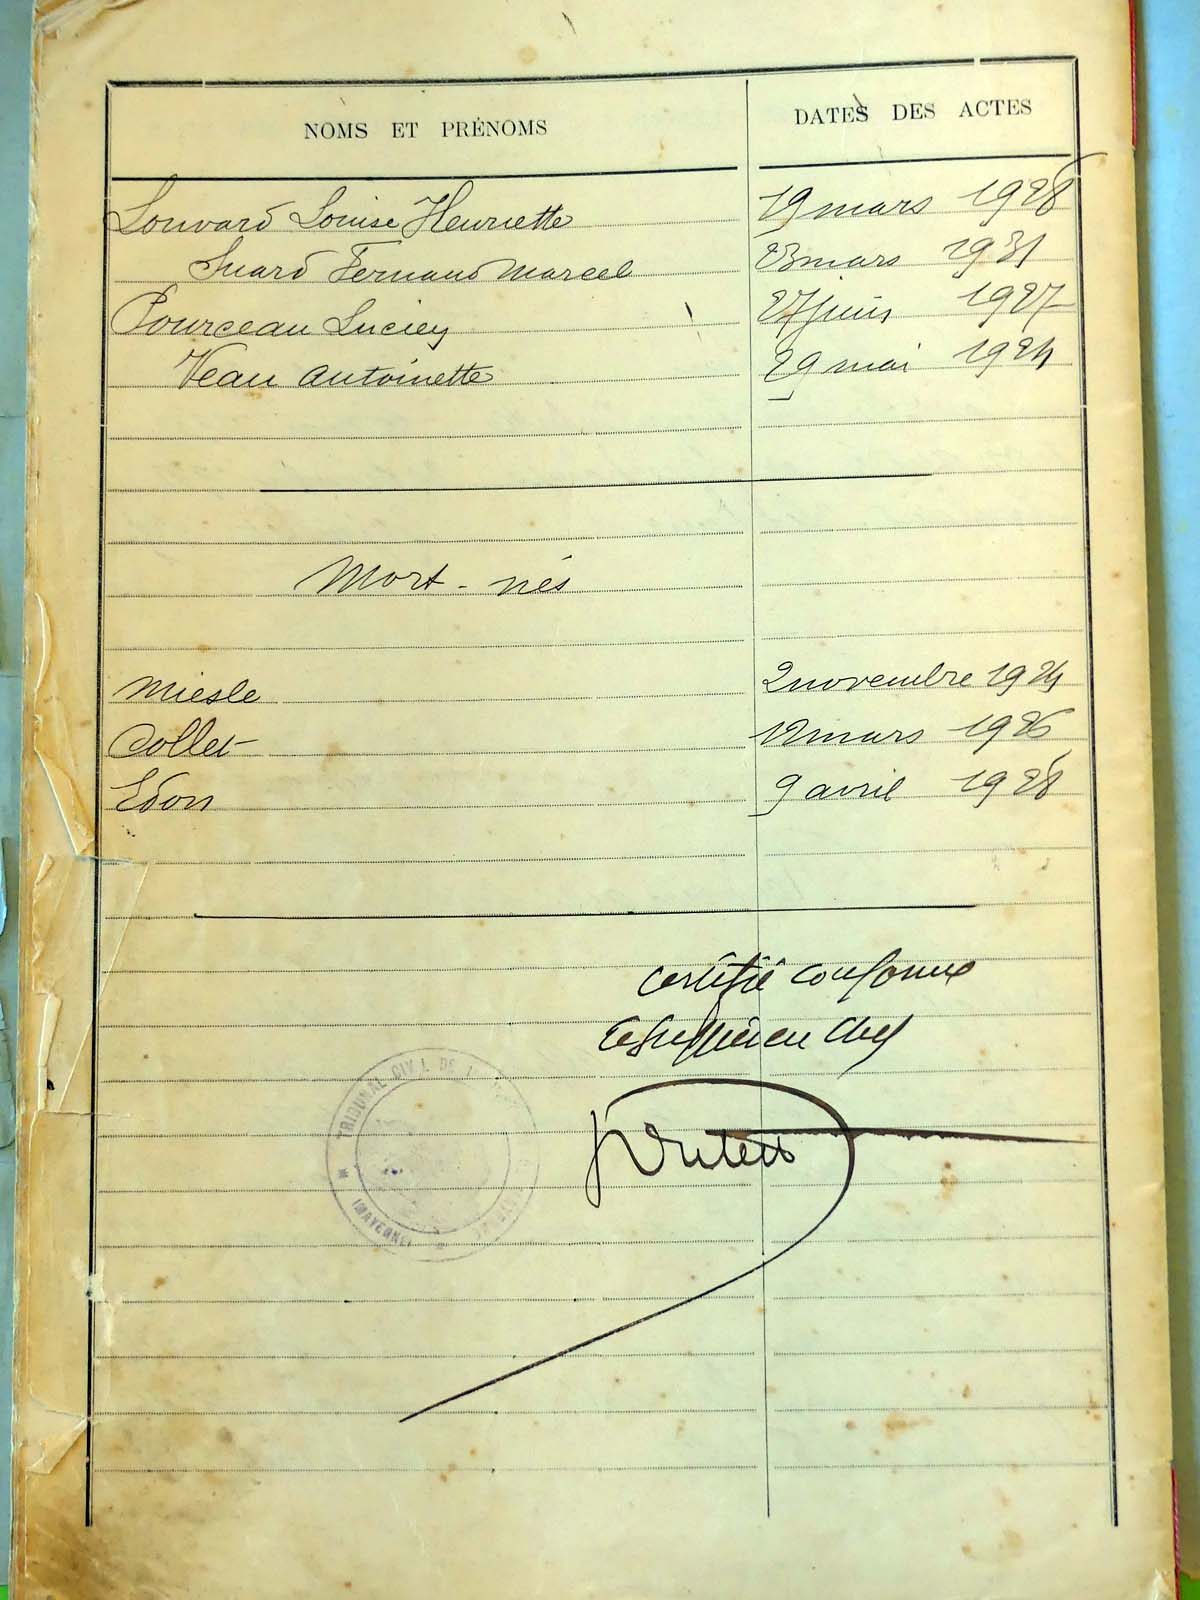 NOMS ET PRÉNOMS DATES DES ACTES
Louvard Louise Henriette 19 mars 1928
Suard Fernand Marcel 23 mars 1931
Pourceau Lucien 27 juin 1927
Veau Antoinette 29 mai 1924
Mort-nés
Miesle 2 novembre 1924
Collet 12 mars 1926
Edon 9 avril 1928
Certifié conforme
Le Greffier en Chef
TRIBUNAL CIVIL DE
(MAYENNE)